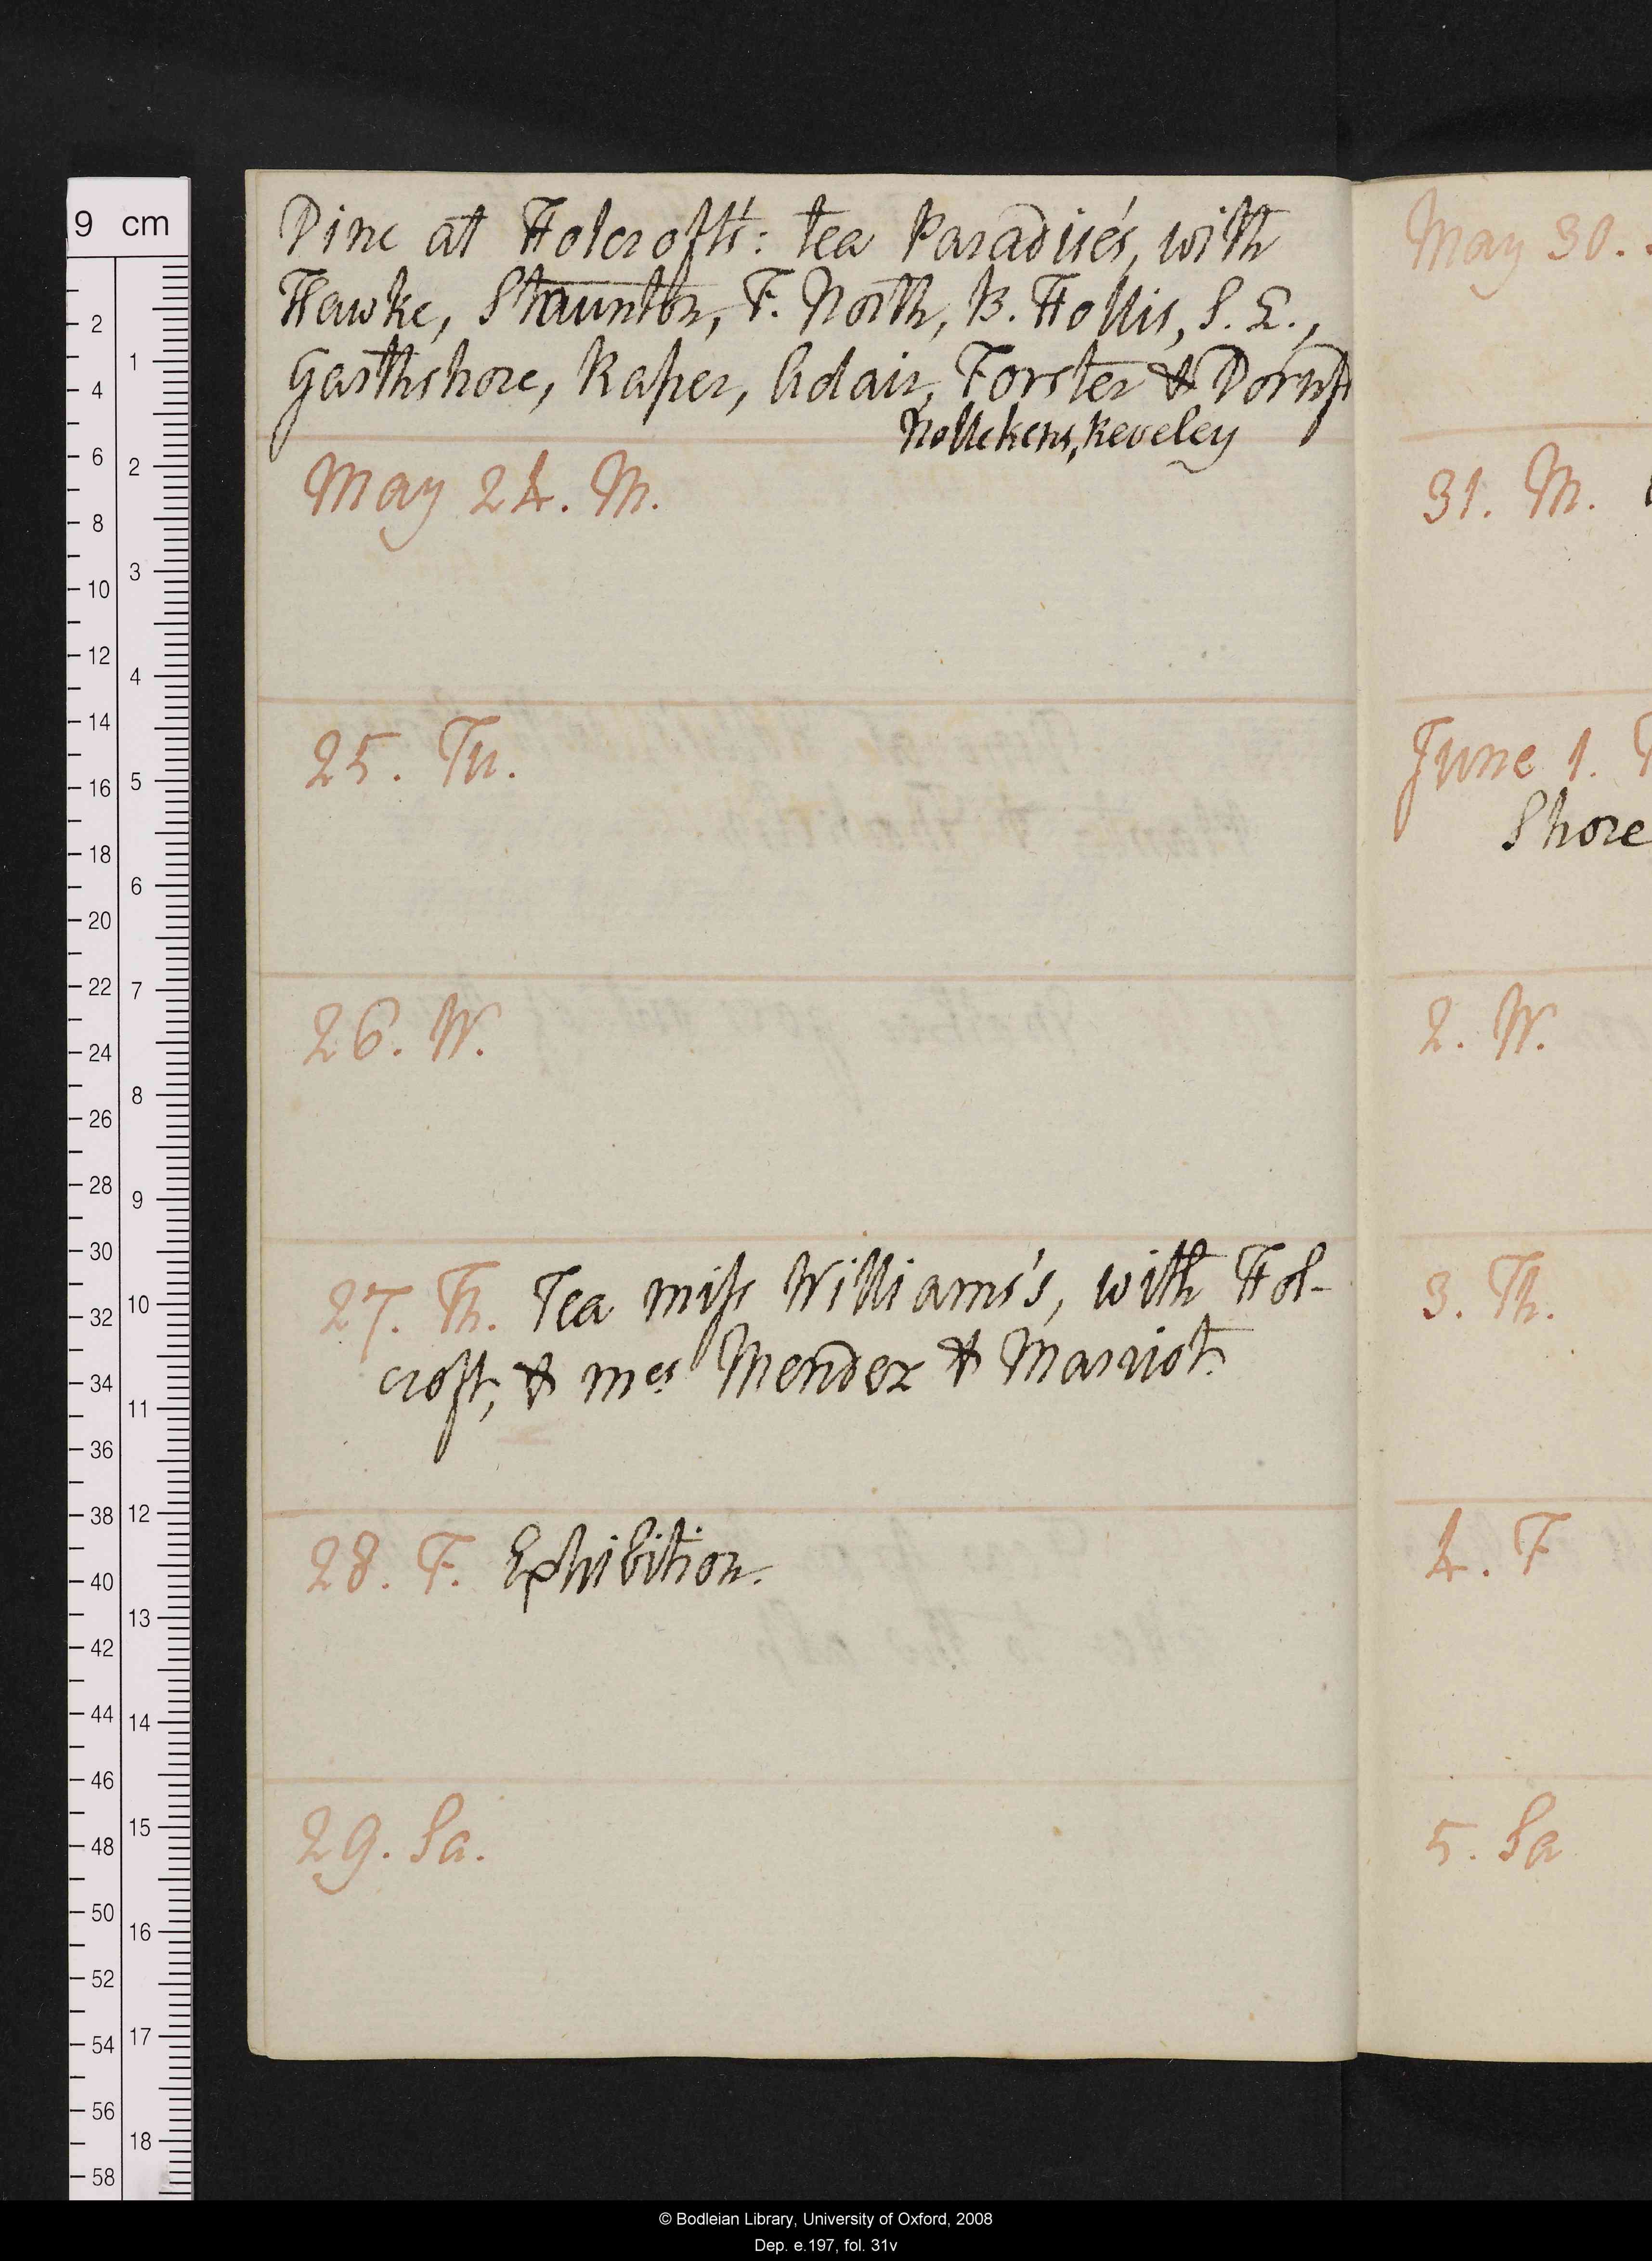 Dine at Holcroft's: tea Paradise's, with
Hawke, Staunton, F. North, B. Hollis, S. E.,
Garthshore, Raper, Adair, Forster & Dornf
Nollekens, Reveley
May 24. M.
25. Tu.
26. W.
27. Th. Tea miss Williams's, with Hol-
croft, & mes Mendez & Marriot.
28. F. Exhibition.
29. Sa.
May 30.
31. M.
June 1. T
Shore
2. W.
3. Th.
4. F
5. Sa
9 cm
2
4
6
8
10
12
14
16
18
20
22
24
26
28
30
32
34
36
38
40
42
44
46
48
50
52
54
56
58
1
2
3
4
5
6
7
8
9
10
11
12
13
14
15
16
17
18
© Bodleian Library, University of Oxford, 2008
Dep. e.197, fol. 31v